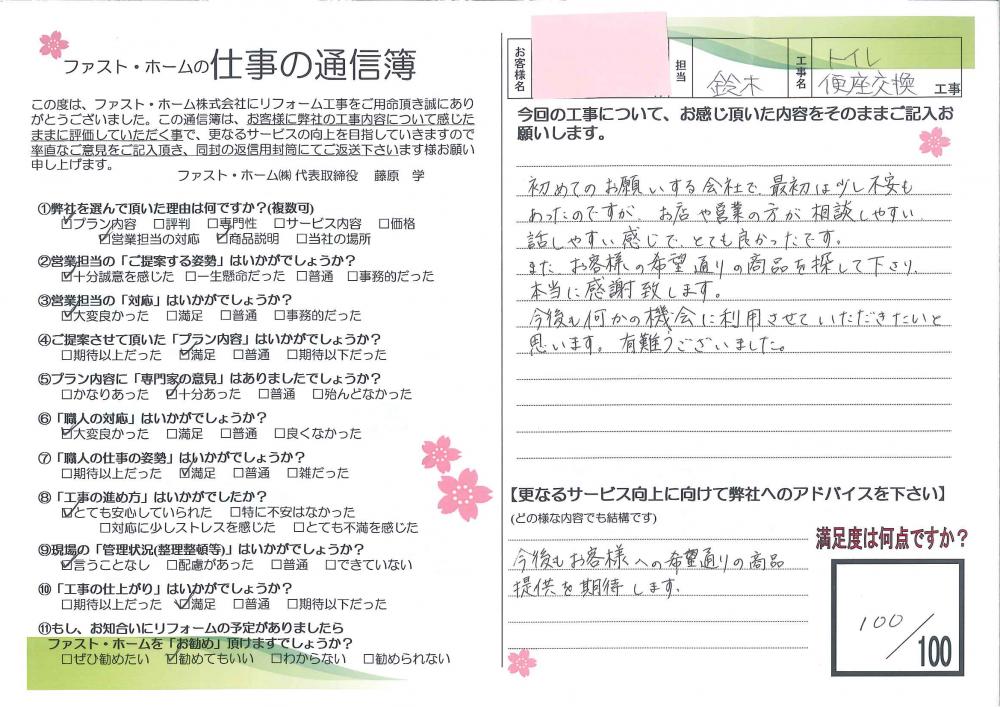 ファスト・ホームの仕事の通信簿
この度は、ファスト・ホーム株式会社にリフォーム工事をご用命頂き誠にあり
がとうございました。この通信簿は、お客様に弊社の工事内容について感じた
ままに評価していただく事で、更なるサービスの向上を目指していきますので
率直なご意見をご記入頂き、同封の返信用封筒にてご返送下さいます様お願い
申し上げます。
ファスト・ホーム㈱ 代表取締役 藤原 学
①弊社を選んで頂いた理由は何ですか？(複数可)
☑プラン内容 □評判 □専門性 □サービス内容 □価格
☑営業担当の対応 ☑商品説明 □当社の場所
②営業担当の「ご提案する姿勢」はいかがでしょうか？
☑十分誠意を感じた □一生懸命だった □普通 □事務的だった
③営業担当の「対応」はいかがでしょうか？
☑大変良かった □満足 □普通 □事務的だった
④ご提案させて頂いた「プラン内容」はいかがでしょうか？
□期待以上だった ☑満足 □普通 □期待以下だった
⑤プラン内容に「専門家の意見」はありましたでしょうか？
□かなりあった ☑十分あった □普通 □殆んどなかった
⑥「職人の対応」はいかがでしょうか？
☑大変良かった □満足 □普通 □良くなかった
⑦「職人の仕事の姿勢」はいかがでしょうか？
□期待以上だった ☑満足 □普通 □雑だった
⑧「工事の進め方」はいかがでしたか？
☑とても安心していられた □特に不安はなかった
□対応に少しストレスを感じた □とても不満を感じた
⑨現場の「管理状況(整理整頓等)」はいかがでしょうか？
☑言うことなし □配慮があった □普通 □できていない
⑩「工事の仕上がり」はいかがでしょうか？
□期待以上だった ☑満足 □普通 □期待以下だった
⑪もし、お知合いにリフォームの予定がありましたら
ファスト・ホームを「お勧め」頂けますでしょうか？
□ぜひ勧めたい ☑勧めてもいい □わからない □勧められない
お客様名 担当 鈴木 工事名 トイレ
便座交換 工事
今回の工事について、お感じ頂いた内容をそのままご記入お
願いします。
初めてのお願いする会社で、最初は少し不安も
あったのですが、お店や営業の方が相談しやすい
話しやすい感じで、とても良かったです。
また、お客様の希望通りの商品を探して下さり、
本当に感謝致します。
今後も何かの機会に利用させていただきたいと
思います。有難うございました。
【更なるサービス向上に向けて弊社へのアドバイスを下さい】
(どの様な内容でも結構です)
今後もお客様への希望通りの商品
提供を期待します。
満足度は何点ですか？
100／100